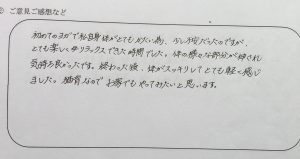 ② ご意見ご感想など
初めてのヨガで私自身体がとてもかたい為、少し不安だったのですが、
とても楽しくリラックスできた時間でした。体の様々な部分が伸され
気持ち良かったです。終わった後、体がスッキリしてとても軽く感じ
ました。簡単なのでお家でもやってみたいと思います。